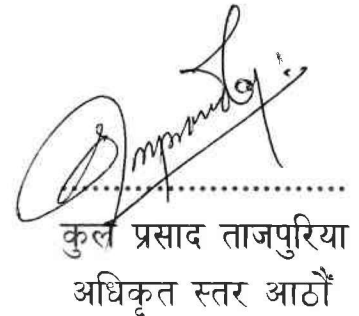 कुल प्रसाद ताजपुरिया
अधिकृत स्तर आठौँ